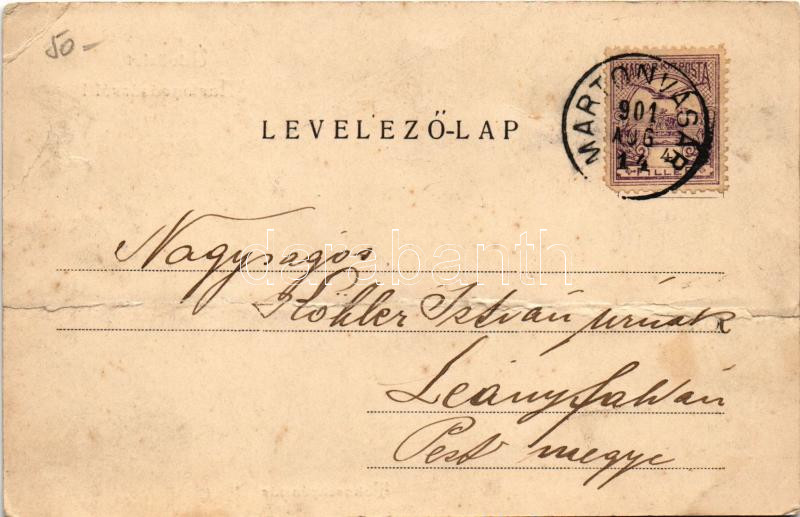 50-
MAGYAR KIR. POSTA
MARTONVÁSÁR
901
AUG
14
4
FILLÉR
LEVELEZŐ-LAP
darabanth
Nagyságos
Köhler István úrnak
Leányfalván
Pest megye